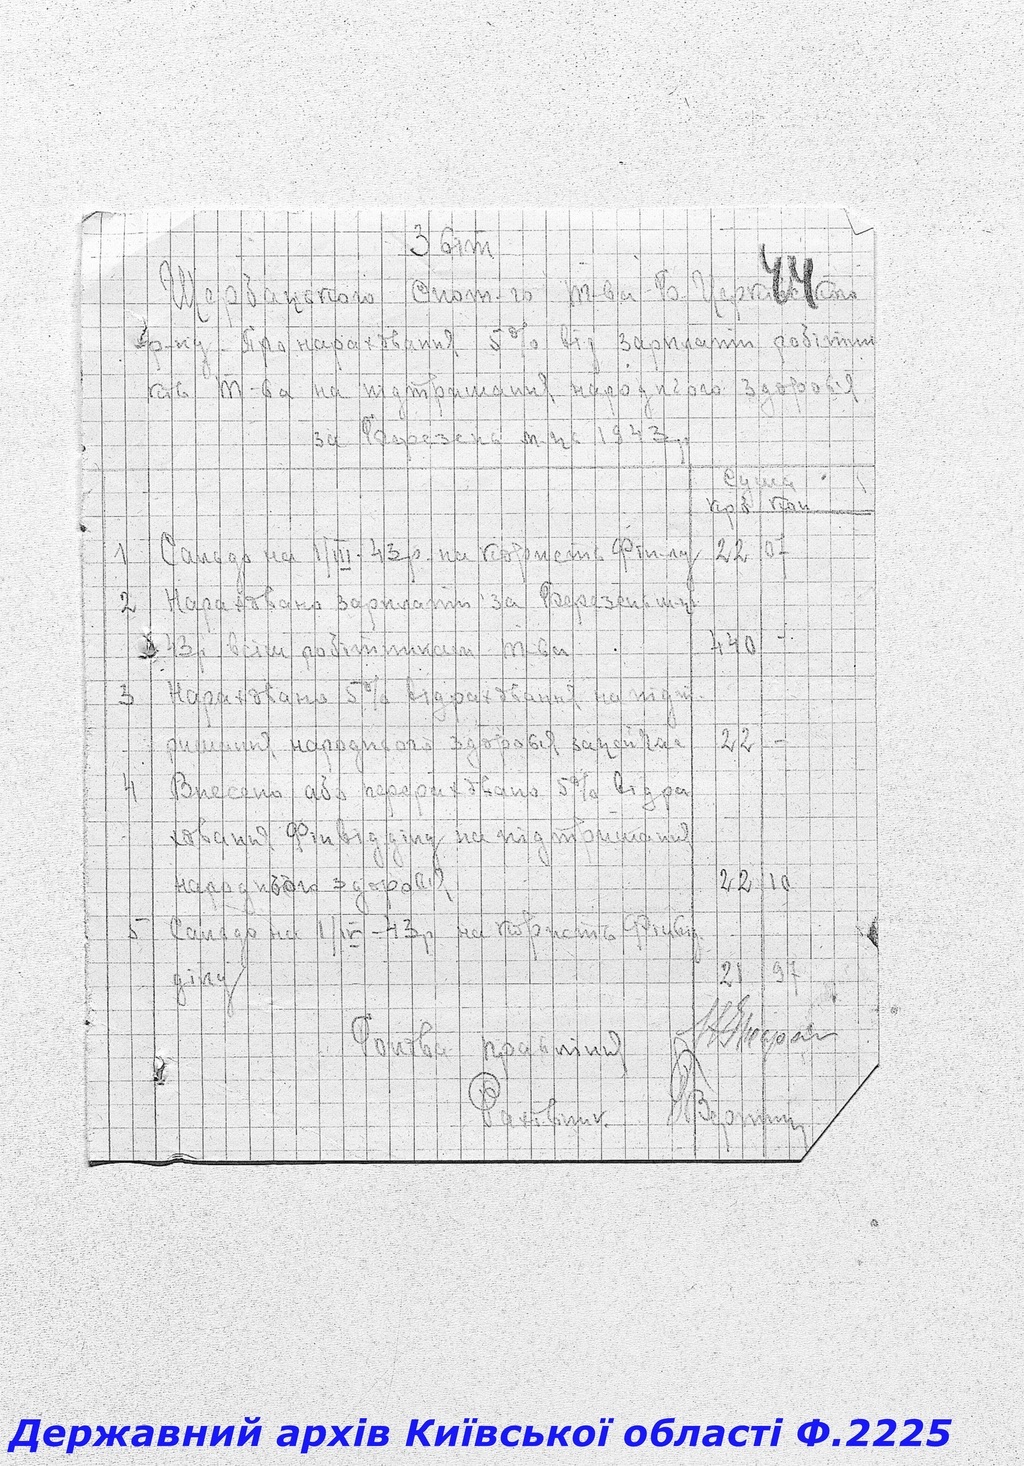 Звіт
44
Щербацького Спож-го т-ва Б. Церківсько
р-ну. Про нарахування 5% від зарплати робітни
ків т-ва на підтримання народнього здоровя
за Березень м-ць 1943 р.
Сума
крб коп
1 Сальдо на 1/III-43р. на користь Фін-лу 22 07
2 Нараховано зарплати за Березень м-ць
43р всім робітникам т-ва 440 -
3 Нараховано 5% відраховання на підт-
римання народнього здоровя за цей час 22 -
4 Внесено або перераховано 5% відра
ховання Фінвідділу на підтримання
народнього здоровя 22 10
5 Сальдо на 1/IV-43р на користь Фінвід
ділу 21 97
Голова правління
Рахівник
Державний архів Київської області Ф.2225